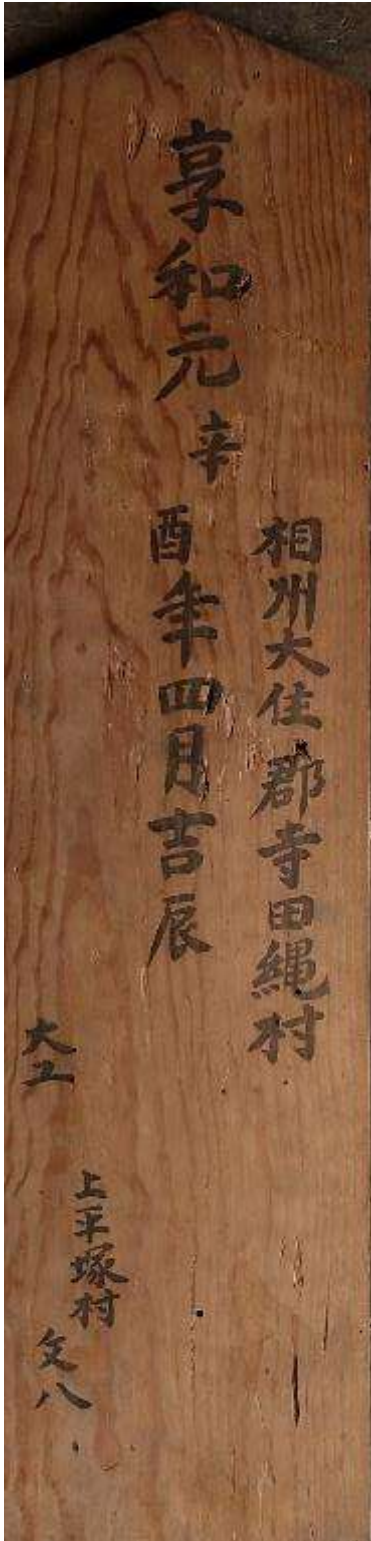 相州大住郡寺田縄村
享和元辛酉年四月吉辰
大工
上平塚村
文八